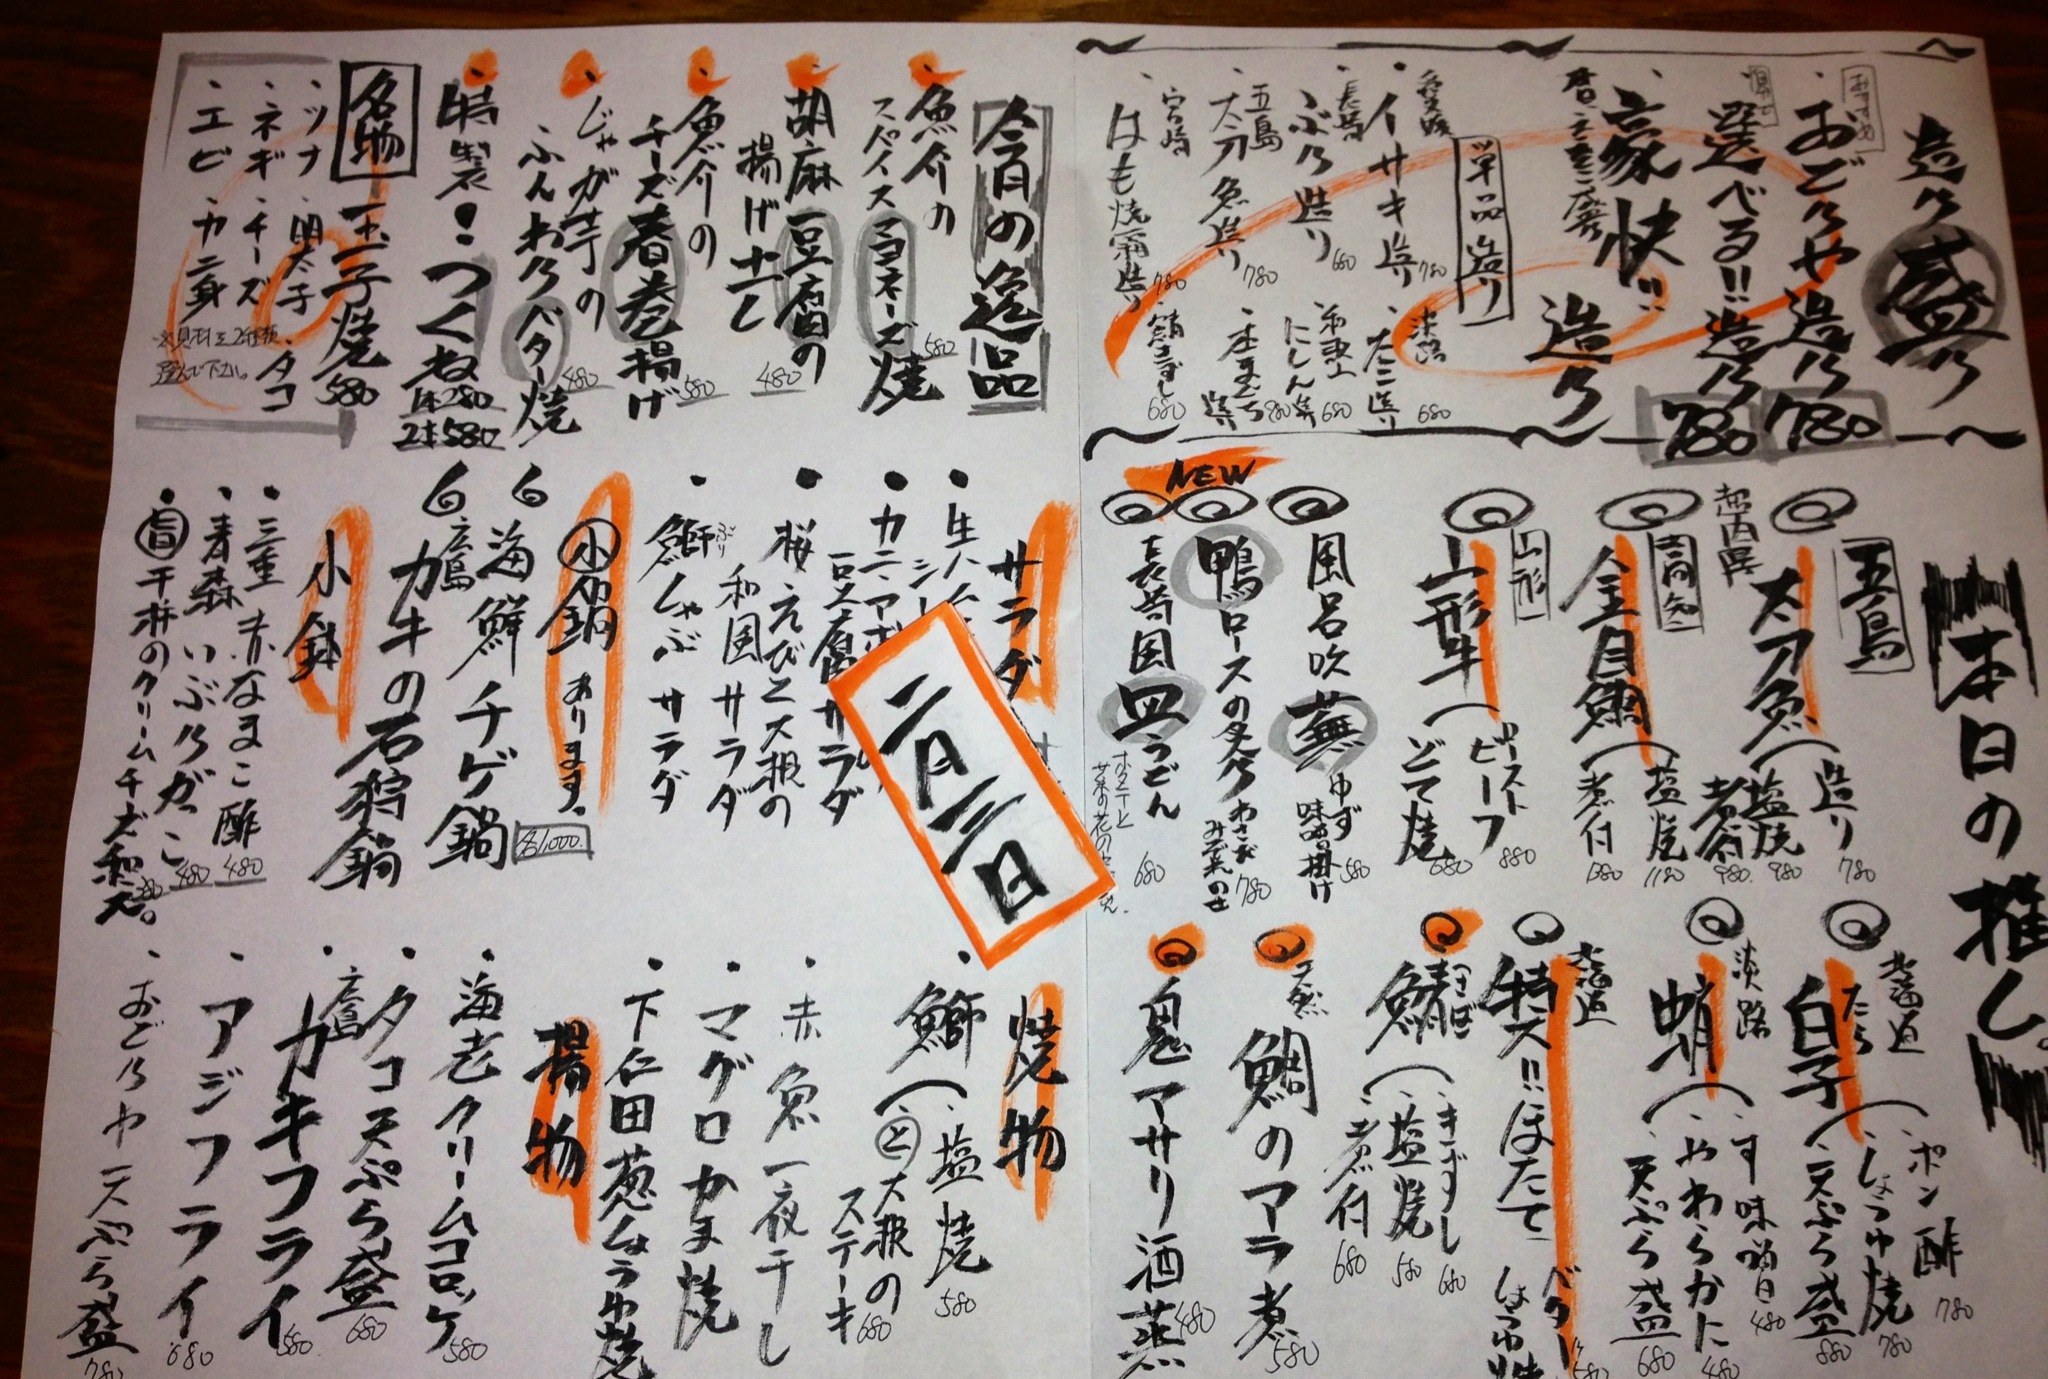 造り盛り
おすすめ
・おごりや造り 780
選べる!!造り 780
・豪快!!造り
単品造り
愛媛
・イサキ造り 780
長崎
・ぶり造り 680
五島
・太刀魚造り 780
宮崎
・はも焼霜造り 780
淡路
・たこ造り 680
にしん造り 680
・鯖きずし 680
今日の逸品
・魚介のスパイスマヨネーズ焼 580
・胡麻豆腐の揚げ出し 480
・魚介のチーズ春巻揚げ 580
・じゃが芋のふんわりバター焼 480
・特製!つくね 1本280 2本580
名物 玉子焼 580
・ツナ ・明太子 ・タコ
・ネギ ・チーズ
・エビ ・カニ身
※具材を2種類
選んで下さい。
本日の推し。
五島
太刀魚
造り 780
塩焼 980
煮付 980
高知
金目鯛
塩焼 1180
煮付 1380
山形
山形牛
ローストビーフ 880
どて焼 680
風呂吹蕪 ゆず味噌掛け 580
NEW
鴨ロースの炙り わさびみぞれのせ 780
長崎 皿うどん 680
北海道
たら白子
ポン酢 780
しょうゆ焼 780
天ぷら盛 880
淡路
蛸
・す味噌 480
・やわらかに 480
・天ぷら盛 680
北海道
特大!!ほたて バターしょうゆ焼 580
鯖
・きずし 680
・塩焼 580
・煮付 680
天然
鯛のアラ煮 580
鬼アサリ酒蒸 480
サラダ
・カニ
豆腐サラダ
・桜えびと大根の和風サラダ
・鰤しゃぶサラダ
ぶり
二月三日
小鍋あります。
各1,000
海鮮チゲ鍋
広島 カキの石狩鍋
小鉢
・三重 赤なまこ酢 480
・青森 いぶりがっこ 480
・干柿のクリームチーズ和え。
焼物
・鰤
・塩焼 580
・と大根のステーキ 680
・赤魚一夜干し
・マグロかま焼
・下仁田葱しょうゆ焼
揚物
・海老クリームコロッケ 580
・タコ天ぷら盛 680
・広島 カキフライ 580
・アジフライ 680
・おごりや天ぷら盛 780